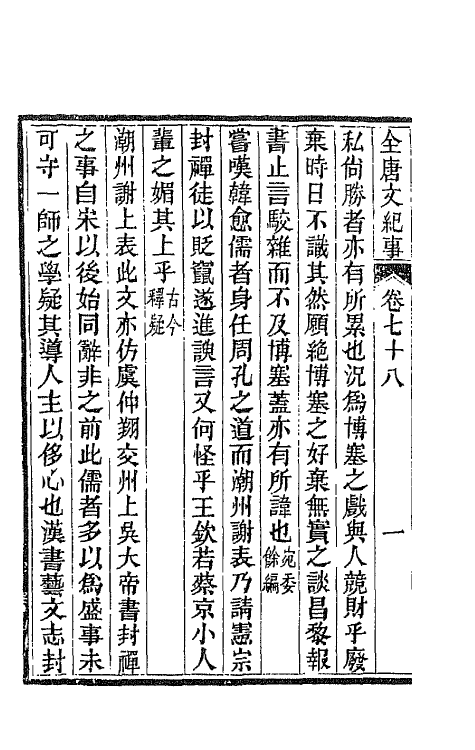 全唐文紀事 卷七十八 一
私尙勝者亦有所累也況爲博塞之戲與人競財乎廢
棄時日不識其然願絶博塞之好棄無實之談昌黎報
書止言駁雜而不及博塞蓋亦有所諱也宛委餘編
嘗嘆韓愈儒者身任周孔之道而潮州謝表乃請憲宗
封禪徒以貶竄遂進諛言又何怪乎王欽若蔡京小人
輩之媚其上乎古今釋疑
潮州謝上表此文亦仿虞仲翔交州上吳大帝書封禪
之事自宋以後始同辭非之前此儒者多以爲盛事未
可守一師之學疑其導人主以侈心也漢書藝文志封